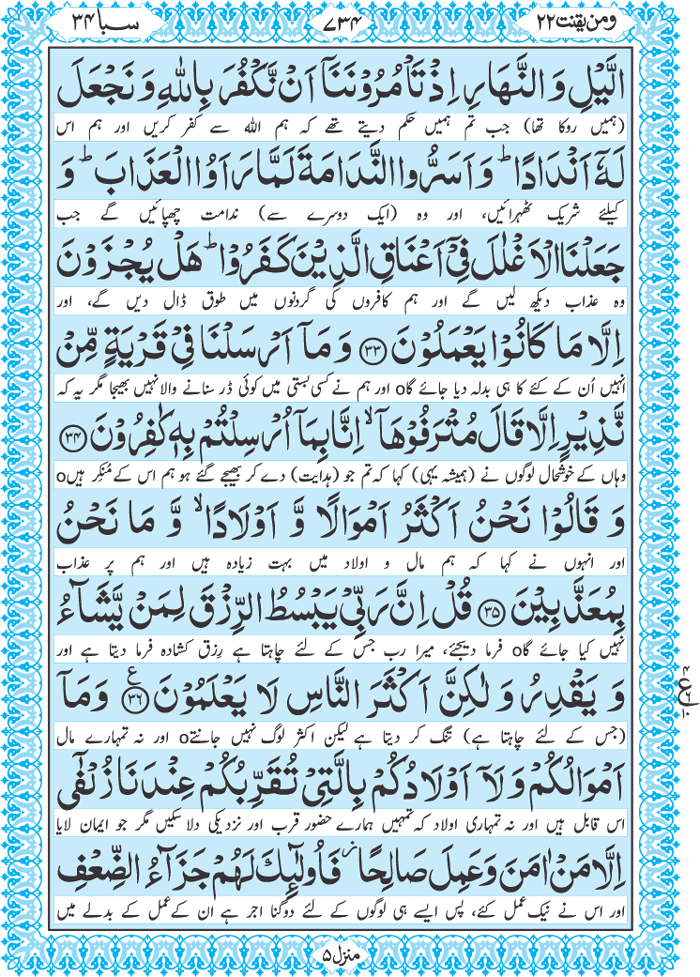 ومن یقنت ۲۲
۷۳۴
سبا ۳۴
الَّيْلِ وَ النَّهَارِ اِذْ تَاْمُرُوْنَنَاۤ اَنْ نَّكْفُرَ بِاللّٰهِ وَ نَجْعَلَ
(ہمیں روکا تھا) جب تم ہمیں حکم دیتے تھے کہ ہم اللہ سے کفر کریں اور ہم اس
لَهٗۤ اَنْدَادًا ؕ وَ اَسَرُّوا النَّدَامَةَ لَمَّا رَاَوُا الْعَذَابَ ؕ وَ
کیلئے شریک ٹھہرائیں، اور وہ (ایک دوسرے سے) ندامت چھپائیں گے جب
جَعَلْنَا الْاَغْلٰلَ فِيْۤ اَعْنَاقِ الَّذِيْنَ كَفَرُوْا ؕ هَلْ يُجْزَوْنَ
وہ عذاب دیکھ لیں گے اور ہم کافروں کی گردنوں میں طوق ڈال دیں گے، اور
اِلَّا مَا كَانُوْا يَعْمَلُوْنَ ﴿۳۳﴾ وَ مَاۤ اَرْسَلْنَا فِيْ قَرْيَةٍ مِّنْ
انہیں اُن کے کئے کا ہی بدلہ دیا جائے گاo اور ہم نے کسی بستی میں کوئی ڈر سنانے والا نہیں بھیجا مگر یہ کہ
نَّذِيْرٍ اِلَّا قَالَ مُتْرَفُوْهَاۤ ۙ اِنَّا بِمَاۤ اُرْسِلْتُمْ بِهٖ كٰفِرُوْنَ ﴿۳۴﴾
وہاں کے خوشحال لوگوں نے (ہمیشہ یہی) کہا کہ تم جو (ہدایت) دے کر بھیجے گئے ہو ہم اس کے مُنکر ہیںo
وَ قَالُوْا نَحْنُ اَكْثَرُ اَمْوَالًا وَّ اَوْلَادًا ۙ وَّ مَا نَحْنُ
اور انہوں نے کہا کہ ہم مال و اولاد میں بہت زیادہ ہیں اور ہم پر عذاب
بِمُعَذَّبِيْنَ ﴿۳۵﴾ قُلْ اِنَّ رَبِّيْ يَبْسُطُ الرِّزْقَ لِمَنْ يَّشَآءُ
نہیں کیا جائے گاo فرما دیجئے، میرا رب جس کے لئے چاہتا ہے رِزق کشادہ فرما دیتا ہے اور
وَ يَقْدِرُ وَ لٰكِنَّ اَكْثَرَ النَّاسِ لَا يَعْلَمُوْنَ ﴿۳۶﴾ ع وَ مَاۤ
(جس کے لئے چاہتا ہے) تنگ کر دیتا ہے لیکن اکثر لوگ نہیں جانتےo اور نہ تمہارے مال
اَمْوَالُكُمْ وَ لَاۤ اَوْلَادُكُمْ بِالَّتِيْ تُقَرِّبُكُمْ عِنْدَنَا زُلْفٰۤى
اس قابل ہیں اور نہ تمہاری اولاد کہ تمہیں ہمارے حضور قرب اور نزدیکی دلا سکیں مگر جو ایمان لایا
اِلَّا مَنْ اٰمَنَ وَ عَمِلَ صَالِحًا ؗ فَاُولٰٓئِكَ لَهُمْ جَزَآءُ الضِّعْفِ
اور اس نے نیک عمل کئے، پس ایسے ہی لوگوں کے لئے دوگنا اجر ہے ان کے عمل کے بدلے میں
منزل ۵